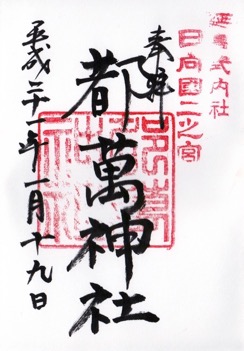 延喜式内社
日向國二之宮
奉拜
都萬神社
平成二十一年一月十九日